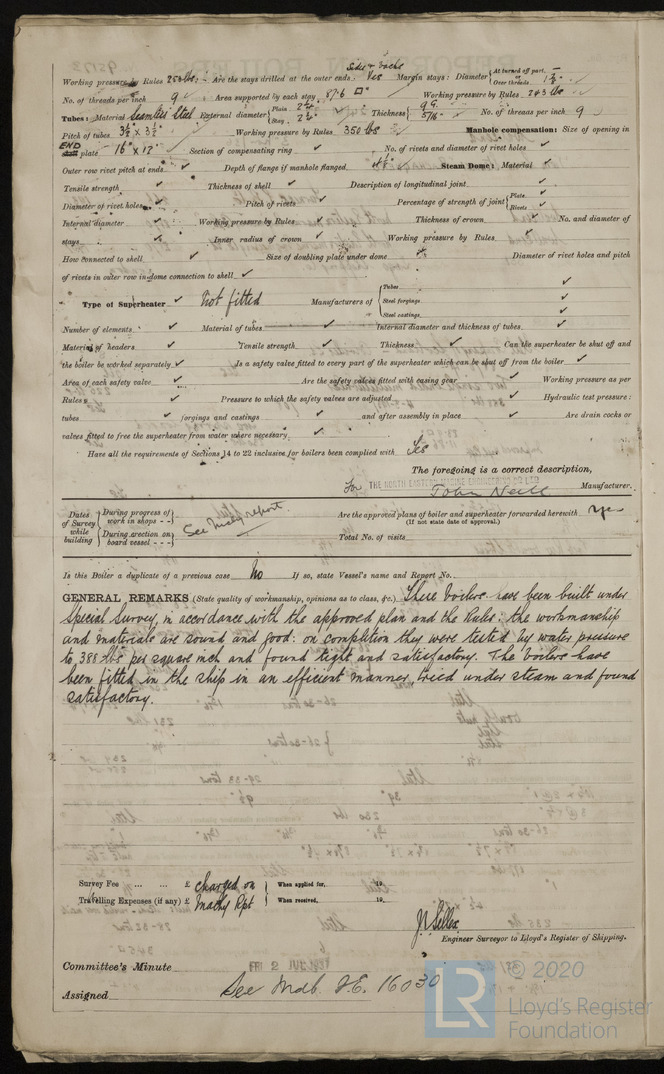 Sides & backs
Working pressure by Rules 250 lbs; - Are the stays drilled at the outer ends Yes Margin stays: Diameter { At turned off part, or Over threads 1 7/8" ✓
No. of threads per inch 9 ✓ Area supported by each stay 87.6 □" Working pressure by Rules 243 lbs ✓
Tubes: Material Seamless Steel External diameter { Plain 2 1/2" Stay 2 1/2" Thickness { 9 G. 5/16" ✓ No. of threads per inch 9 ✓
Pitch of tubes 3 3/4" x 3 3/4" Working pressure by Rules 350 lbs ✓ Manhole compensation: Size of opening in
END plate 16" x 12" ✓ Section of compensating ring ✓ No. of rivets and diameter of rivet holes ✓
Outer row rivet pitch at ends ✓ Depth of flange if manhole flanged ✓ Steam Dome: Material ✓
Tensile strength ✓ Thickness of shell ✓ Description of longitudinal joint ✓
Diameter of rivet holes ✓ Pitch of rivets ✓ Percentage of strength of joint { Plate ✓ Rivets ✓
Internal diameter ✓ Working pressure by Rules ✓ Thickness of crown ✓ No. and diameter of
stays ✓ Inner radius of crown ✓ Working pressure by Rules ✓
How connected to shell ✓ Size of doubling plate under dome ✓ Diameter of rivet holes and pitch
of rivets in outer row in dome connection to shell ✓
Type of Superheater ✓ Not fitted Manufacturers of { Tubes ✓
Steel forgings ✓
Steel castings ✓
Number of elements ✓ Material of tubes ✓ Internal diameter and thickness of tubes ✓
Material of headers ✓ Tensile strength ✓ Thickness ✓ Can the superheater be shut off and
the boiler be worked separately ✓ Is a safety valve fitted to every part of the superheater which can be shut off from the boiler ✓
Area of each safety valve ✓ Are the safety valves fitted with easing gear ✓ Working pressure as per
Rules ✓ Pressure to which the safety valves are adjusted ✓ Hydraulic test pressure:
tubes ✓ forgings and castings ✓ and after assembly in place ✓ Are drain cocks or
valves fitted to free the superheater from water where necessary ✓
Have all the requirements of Sections 14 to 22 inclusive for boilers been complied with Yes
The foregoing is a correct description,
For THE NORTH EASTERN MARINE ENGINEERING CO LTD
John Neill Manufacturer.
Dates of Survey while building { During progress of work in shops - - } See Mchy report. Are the approved plans of boiler and superheater forwarded herewith Yes
(If not state date of approval.)
{ During erection on board vessel - - - } Total No. of visits
Is this Boiler a duplicate of a previous case No If so, state Vessel's name and Report No.
GENERAL REMARKS (State quality of workmanship, opinions as to class, &c.) These boilers have been built under
Special Survey, in accordance with the approved plan and the Rules: the workmanship
and materials are sound and good: on completion they were tested by water pressure
to 388 lbs per square inch and found tight and satisfactory. The boilers have
been fitted in the ship in an efficient manner, tried under steam and found
satisfactory.
Survey Fee ... ... £ Charged on When applied for, 19
Travelling Expenses (if any) £ Machy Rpt When received, 19
Engineer Surveyor to Lloyd's Register of Shipping.
Committee's Minute FRI 2 JUL 1937
Assigned See Mdb. F.E. 16030
LR © 2020
Lloyd's Register
Foundation